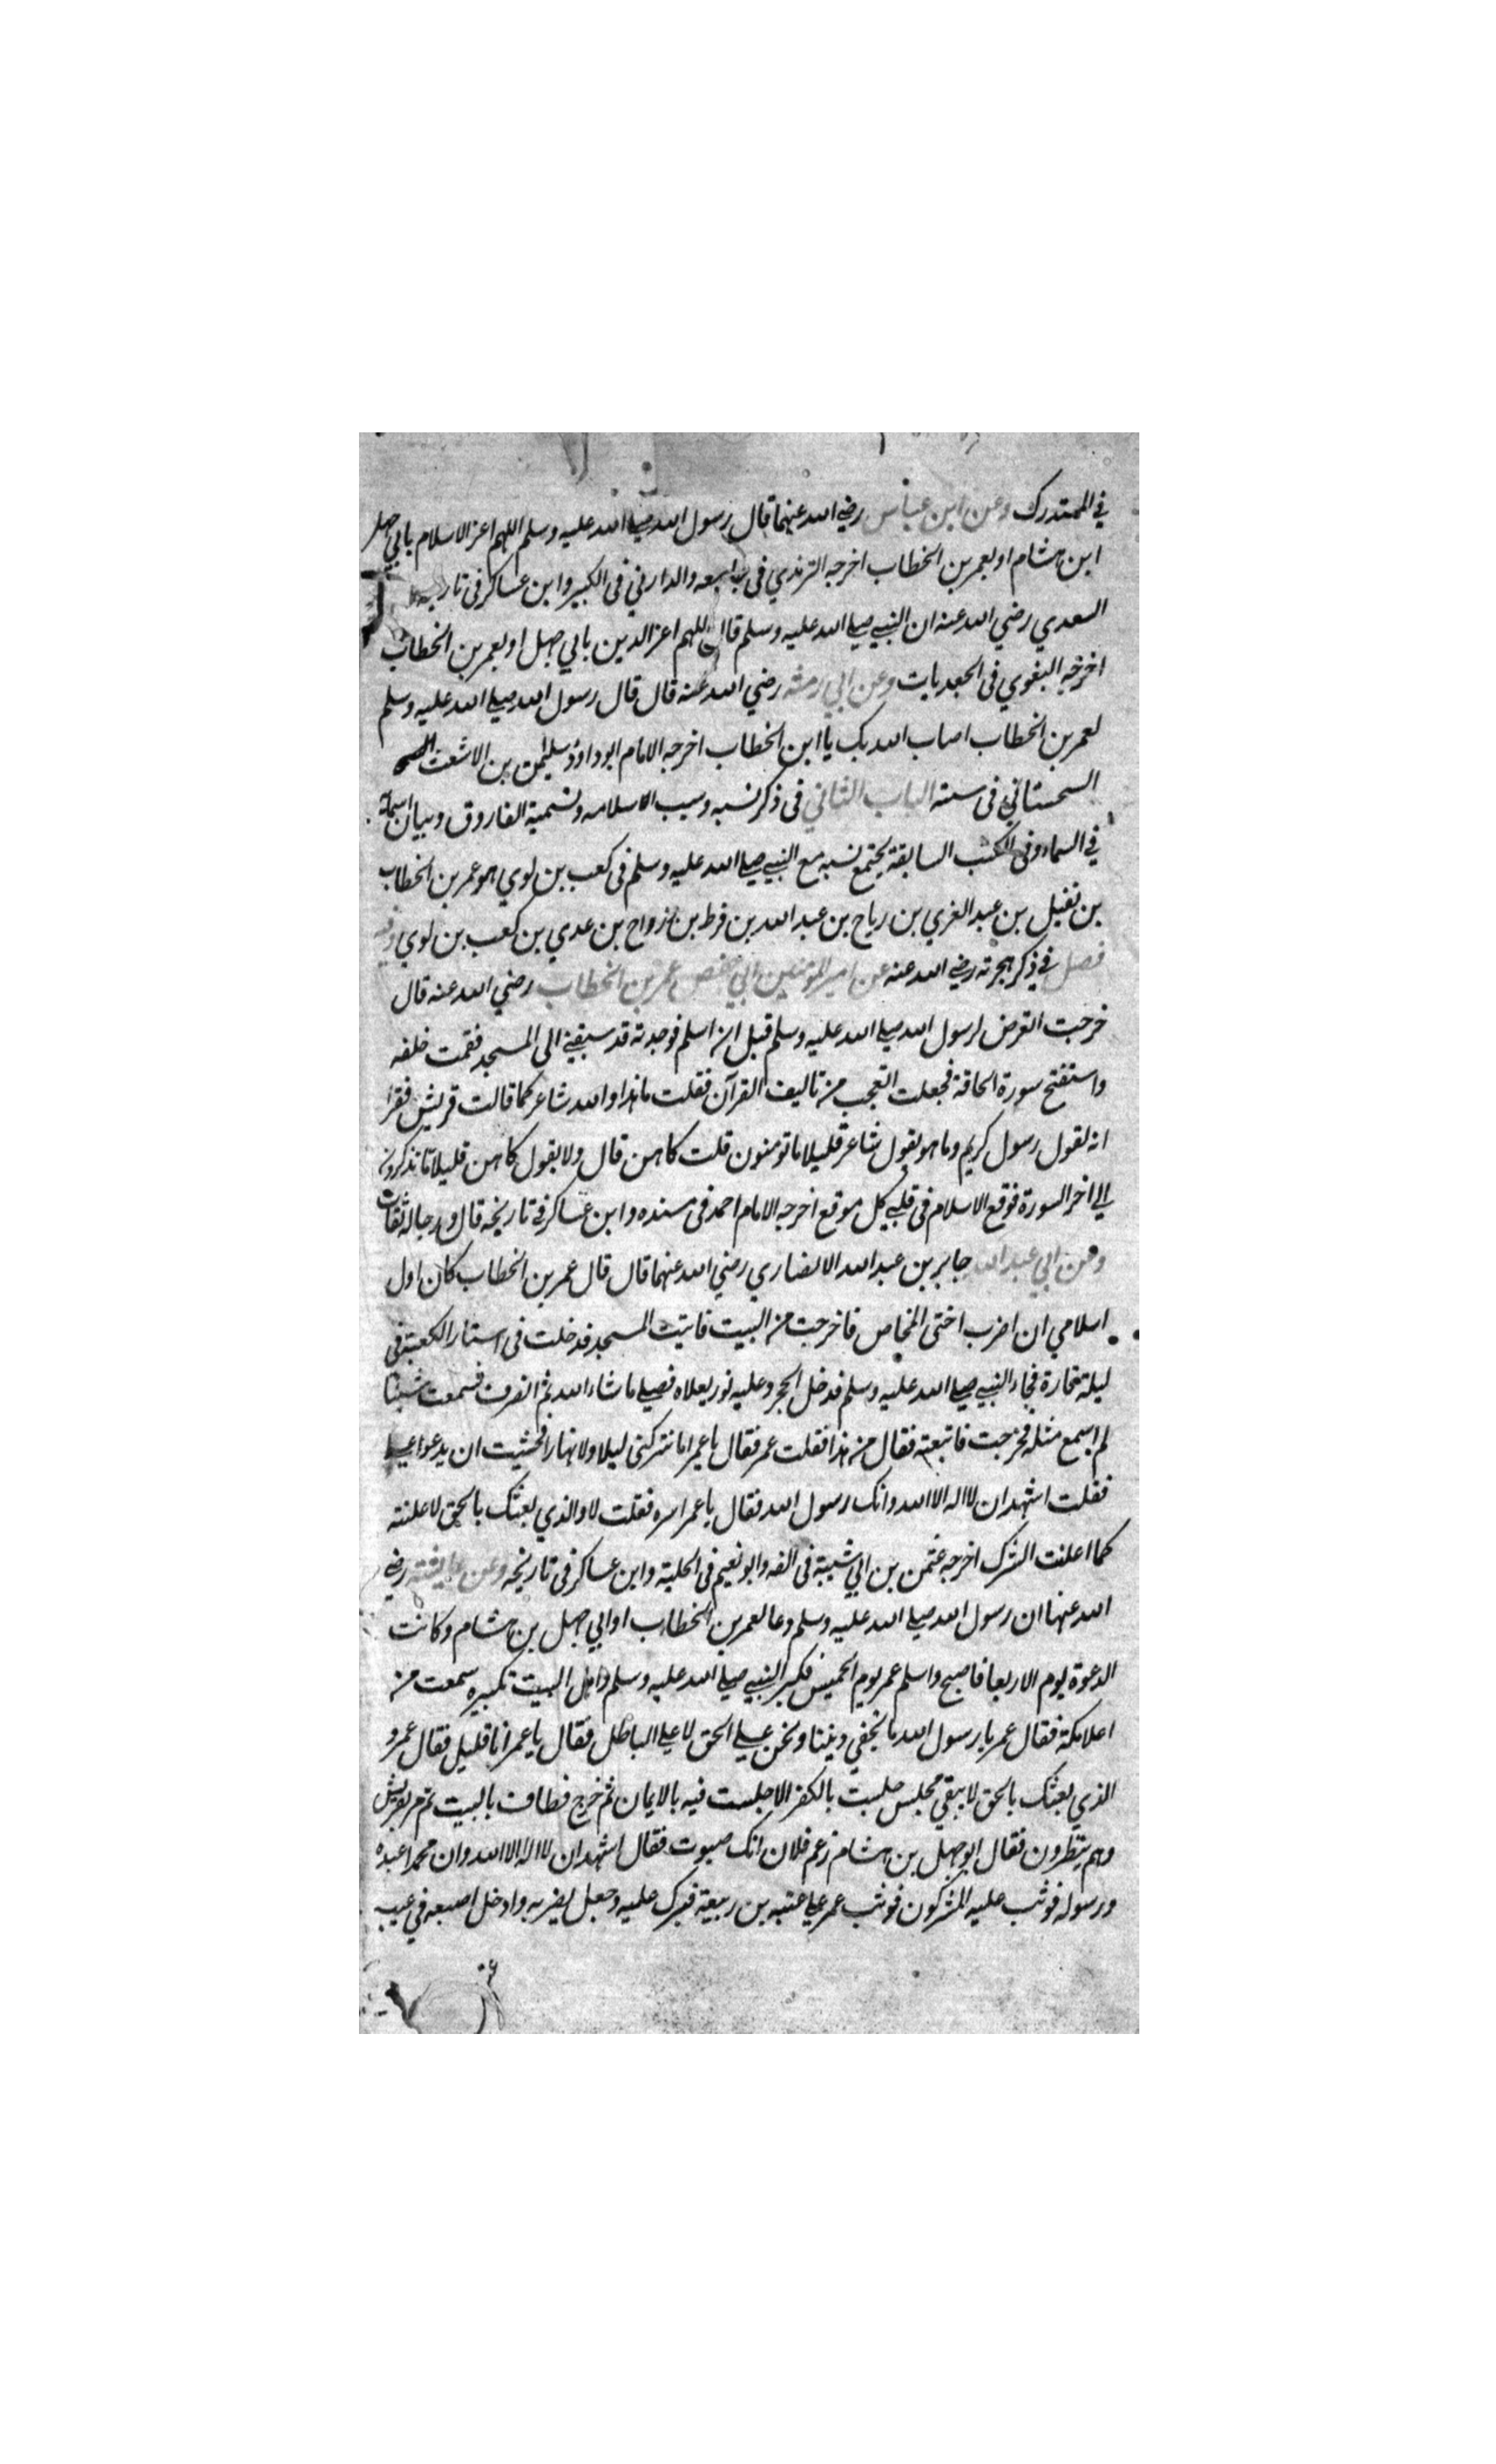 في المستدرك وعن ابن عباس رضي الله عنهما قال رسول الله صلى الله عليه وسلم اللهم اعز الاسلام بابي جهل
ابن هشام او بعمر بن الخطاب اخرجه الترمذي في والدارني في الكبير وابن عساكر في تاريخه
السعدي رضي الله عنه ان النبي صلى الله عليه وسلم قال اللهم اعز الدين بابي جهل او بعمر بن الخطاب
اخرجه البغوي في الجعديات وعن ابي رمشه رضي الله عنه قال قال رسول الله صلى الله عليه وسلم
لعمر بن الخطاب اصاب الله بك يا ابن الخطاب اخرجه الامام ابو داود سليمن بن الاشعث
السجستاني في سننه الباب الثاني في ذكر نسبه وسبب الاسلامه وتسمية الفاروق وبيان اسمائه
في السماء وفي الكتب السابقة يجتمع نسبه مع النبي صلى الله عليه وسلم في كعب بن لوي هو عمر بن الخطاب
بن نفيل بن عبد العزي بن رباح بن عبد الله بن قرط بن زواح بن عدي بن كعب بن لوي وفيه
فصل في ذكر هجرته رضي الله عنه عن امير المؤمنين ابي حفص عمر بن الخطاب رضي الله عنه قال
خرجت اتعرض لرسول الله صلى الله عليه وسلم قبل ان اسلم فوجدته قد سبقني الى المسجد فقمت خلفه
واستفتح سورة الحاقة فجعلت اتعجب من تاليف القرآن فقلت هذا والله شاعر كما قالت قريش فقرا
انه لقول رسول كريم وما هو بقول شاعر قليلا ما تومنون قلت كاهن قال ولا بقول كاهن قليلا ما تذكرون
الي اخر السورة فوقع الاسلام في قلبي كل موقع اخرجه الامام احمد في مسنده وابن عساكر في تاريخه قال ورجاله ثقات
وعن ابي عبد الله جابر بن عبد الله الانصاري رضي الله عنهما قال قال عمر بن الخطاب كان اول
اسلامي ان اضرب اختى المخاص فاخرجت من البيت فاتيت المسجد فدخلت في استار الكعبة في
ليلة فجاء النبي صلى الله عليه وسلم فدخل الحجر وعليه نور يعلاه فصلي ما شاء الله ثم انصرف فسمعت شيئا
لم اسمع مثله فخرجت فاتبعته فقال من هذا فقلت عمر فقال يا عمر اما تتركني ليلا ولا نهارا فخشيت ان يدعوا علي
فقلت اشهد ان لا اله الا الله وانك رسول الله فقال يا عمر اسره فقلت لا والذي بعثك بالحق لاعلنته
كما اعلنت الشرك اخرجه عثمن بن ابي شيبة في الفه وابو نعيم في الحلية وابن عساكر في تاريخه وعن عايشة رضي
الله عنها ان رسول الله صلى الله عليه وسلم دعا لعمر بن الخطاب او ابي جهل بن هشام وكانت
الدعوة يوم الاربعا فاصبح واسلم عمر يوم الخميس فكبر النبي صلى الله عليه وسلم واهل البيت تكبيره سمعت من
اعلا مكة فقال عمر يا رسول الله ما نخفي ديننا ونحن علي الحق لا علي الباطل فقال يا عمر انا قليل فقال عمر و
الذي بعثك بالحق لا يبقي مجلس جلست بالكفر الا جلست فيه بالايمان ثم خرج فطاف بالبيت ثم مر بقريش
وهم ينتظرون فقال ابو جهل بن هشام زعم فلان انك صبوت فقال اشهد ان لا اله الا الله وان محمدا عبده
ورسوله فوثب عليه المشركون فوثب عمر علي عتبه بن ربيعة فبرك عليه وجعل يضربه وادخل اصبعه في عيب